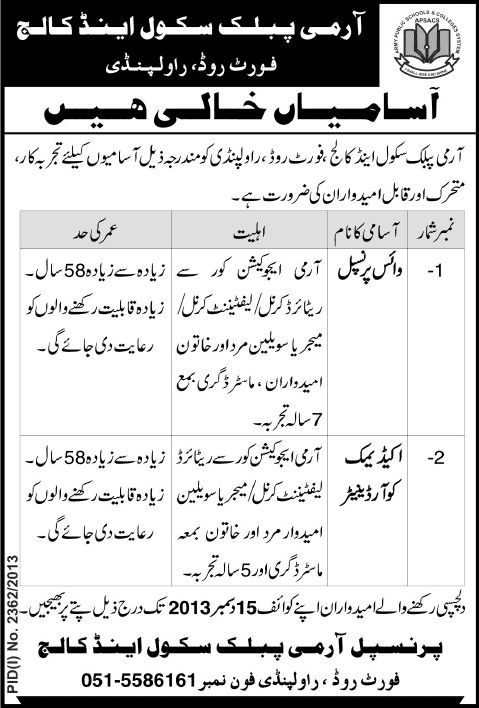 آرمی پبلک سکول اینڈ کالج
فورٹ روڈ، راولپنڈی
ARMY PUBLIC SCHOOLS & COLLEGES SYSTEM
APSACS
I SHALL RISE AND SHINE
آسامیاں خالی ھیں
آرمی پبلک سکول اینڈ کالج، فورٹ روڈ، راولپنڈی کو مندرجہ ذیل آسامیوں کیلئے تجربہ کار،
متحرک اور قابل امیدواران کی ضرورت ہے۔
نمبر شمار آسامی کا نام اہلیت عمر کی حد
1- وائس پرنسپل آرمی ایجوکیشن کور سے زیادہ سے زیادہ 58 سال۔
ریٹائرڈ کرنل/لیفٹیننٹ کرنل/ زیادہ قابلیت رکھنے والوں کو
میجر یا سویلین مرد اور خاتون رعایت دی جائے گی۔
امیدواران، ماسٹر ڈگری بمع
7 سالہ تجربہ۔
2- اکیڈیمک آرمی ایجوکیشن کور سے ریٹائرڈ زیادہ سے زیادہ 58 سال۔
کوآرڈینیٹر لیفٹیننٹ کرنل/میجر یا سویلین زیادہ قابلیت رکھنے والوں کو
امیدوار مرد اور خاتون بمعہ رعایت دی جائے گی۔
ماسٹر ڈگری اور 5 سالہ تجربہ۔
دلچسپی رکھنے والے امیدواران اپنے کوائف 15 دسمبر 2013 تک درج ذیل پتے پر بھیجیں۔
پرنسپل آرمی پبلک سکول اینڈ کالج
فورٹ روڈ، راولپنڈی فون نمبر 051-5586161
PID(I) No. 2362/2013